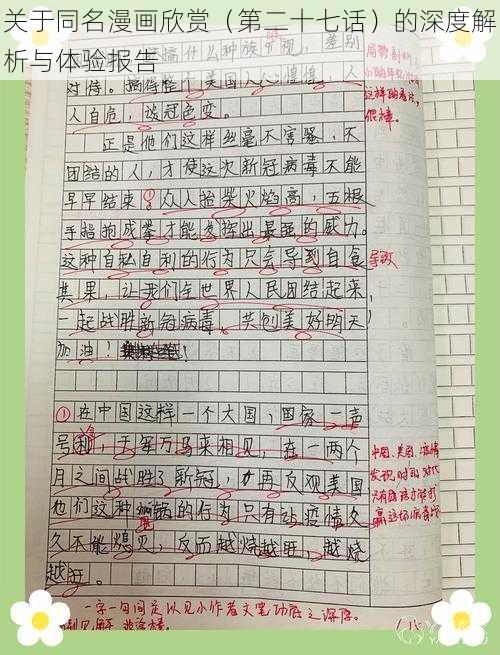 关于同名漫画欣赏（第二十七话）的深度解析与体验报告
搞什么种族歧视，差别
对待。搞得整个美国人心惶惶，人
人自危，谈冠色变。
正是他们这样丝毫不害骚，不
团结的人，才使这次新冠病毒不能
早早结束①众人拾柴火焰高，五根
手指抱成拳才能发挥出最强的威力。
这种自私自利的行为只会导到自食
其果，让我们全世界人民团结起来，
一起战胜新冠病毒，共创美好明天！
加油！
①在中国这样一个大国，国家一声
号利，千军万马来相见，在一两个
月之间战胜了新冠，再反观美国
他们这种的行为只有让疫情久
久不能熄灭，反而越烧越旺，越烧
越旺。
这样的看法，
很棒。
导致
中国、美国、疫情
一字一句间足以见小作者文笔功底之深厚。